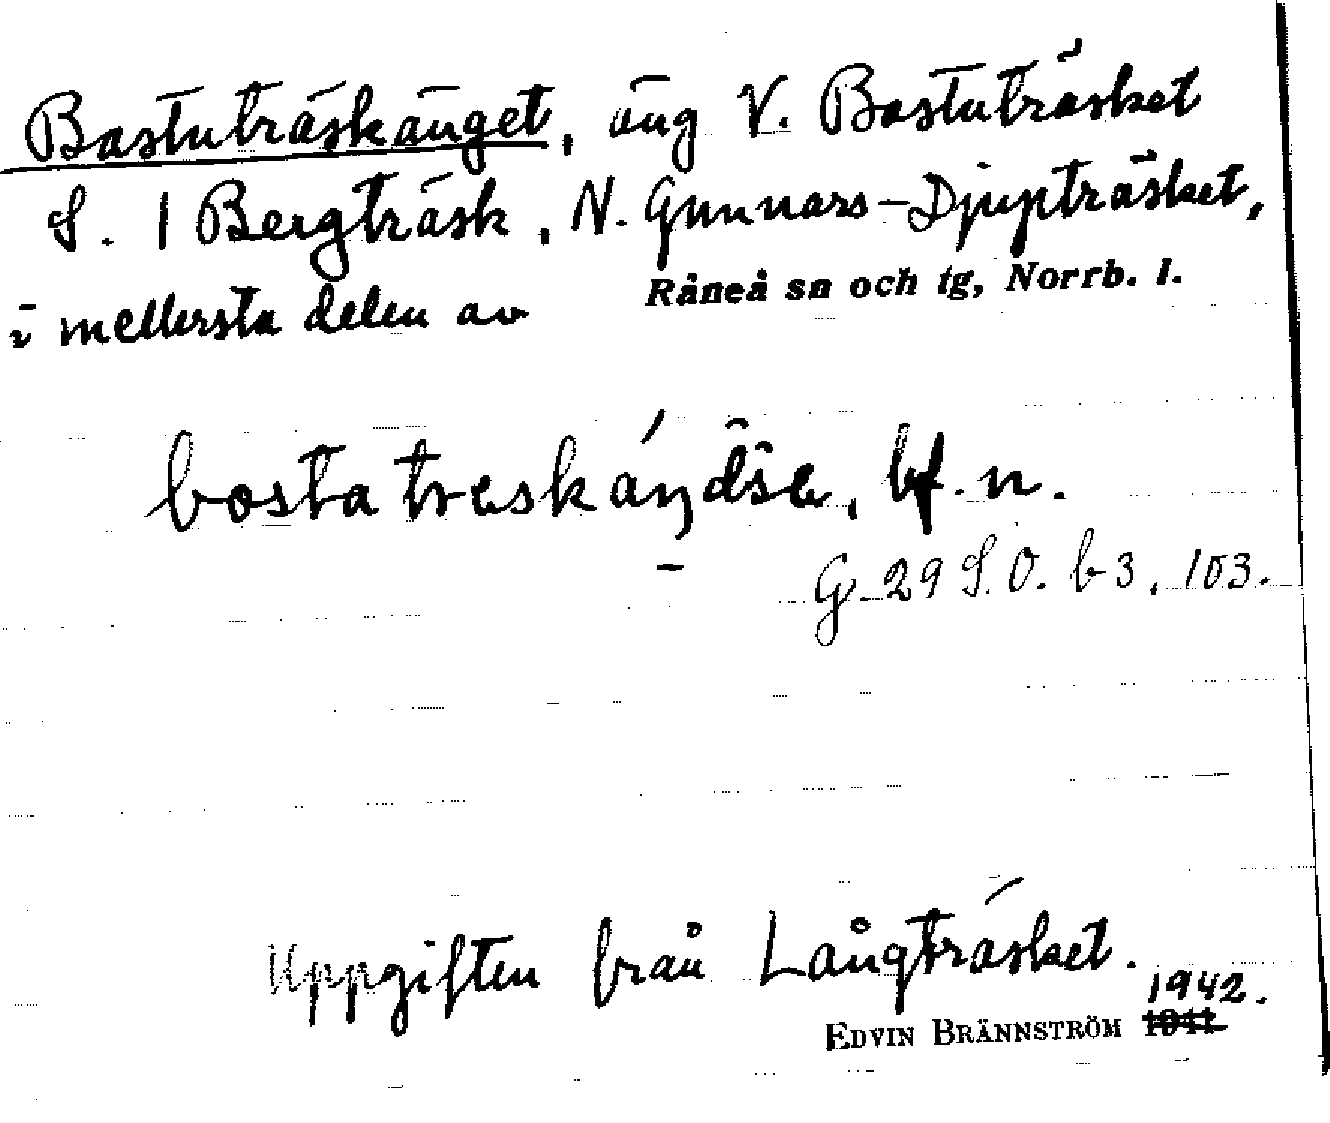 Bastuträskänget, äng V. Bastuträsket
S. 1 Bergträsk, N. Gunnars-Djupträsket,
i mellersta delen av Råneå sn och tg, Norrb. l.
bf. n.
G 29 S.O. b 3, 103.
Uppgiften från Långträsket.
1942.
EDVIN BRÄNNSTRÖM 1941